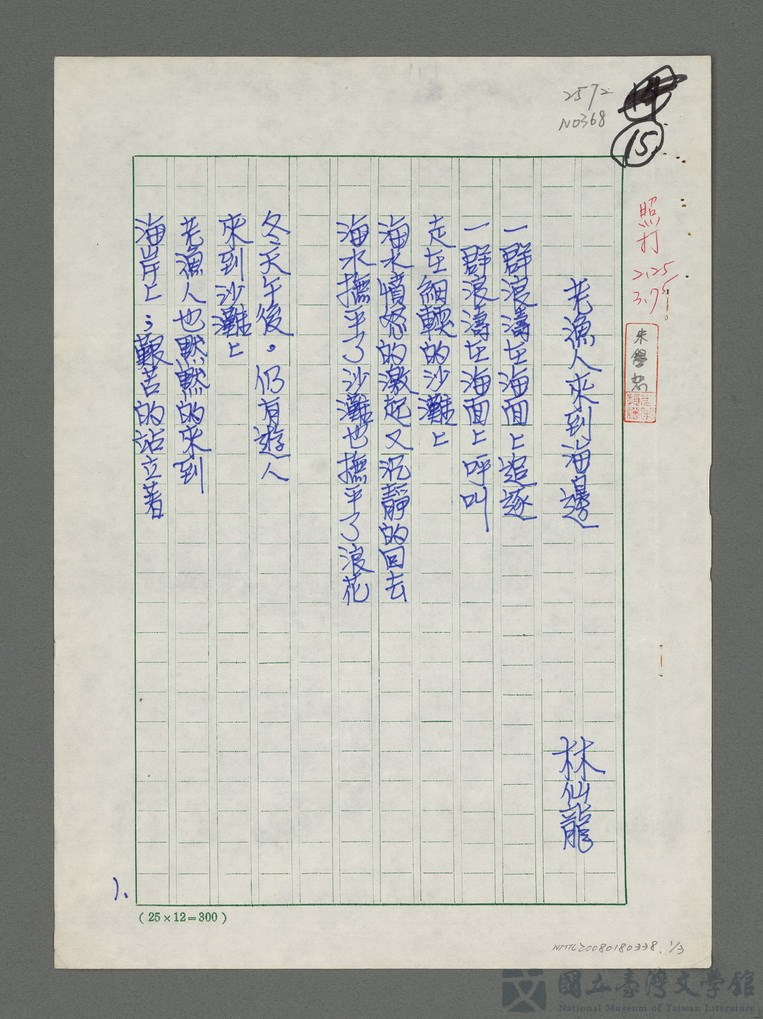 2572
NO368
15
照打
2.25/
3.75
朱學恕
老漁人來到海邊
林仙龍
一群浪濤在海面上追逐
一群浪濤在海面上呼叫
走在細軟的沙灘上
海水憤怒的激起又沉靜的回去
海水撫平了沙灘也撫平了浪花
冬天午後。仍有遊人
來到沙灘上
老漁人也默默的來到
海岸上;艱苦的站立著
1.
(25×12=300)
NMTL20080180338. 1/3
國立臺灣文學館
National Museum of Taiwan Literature